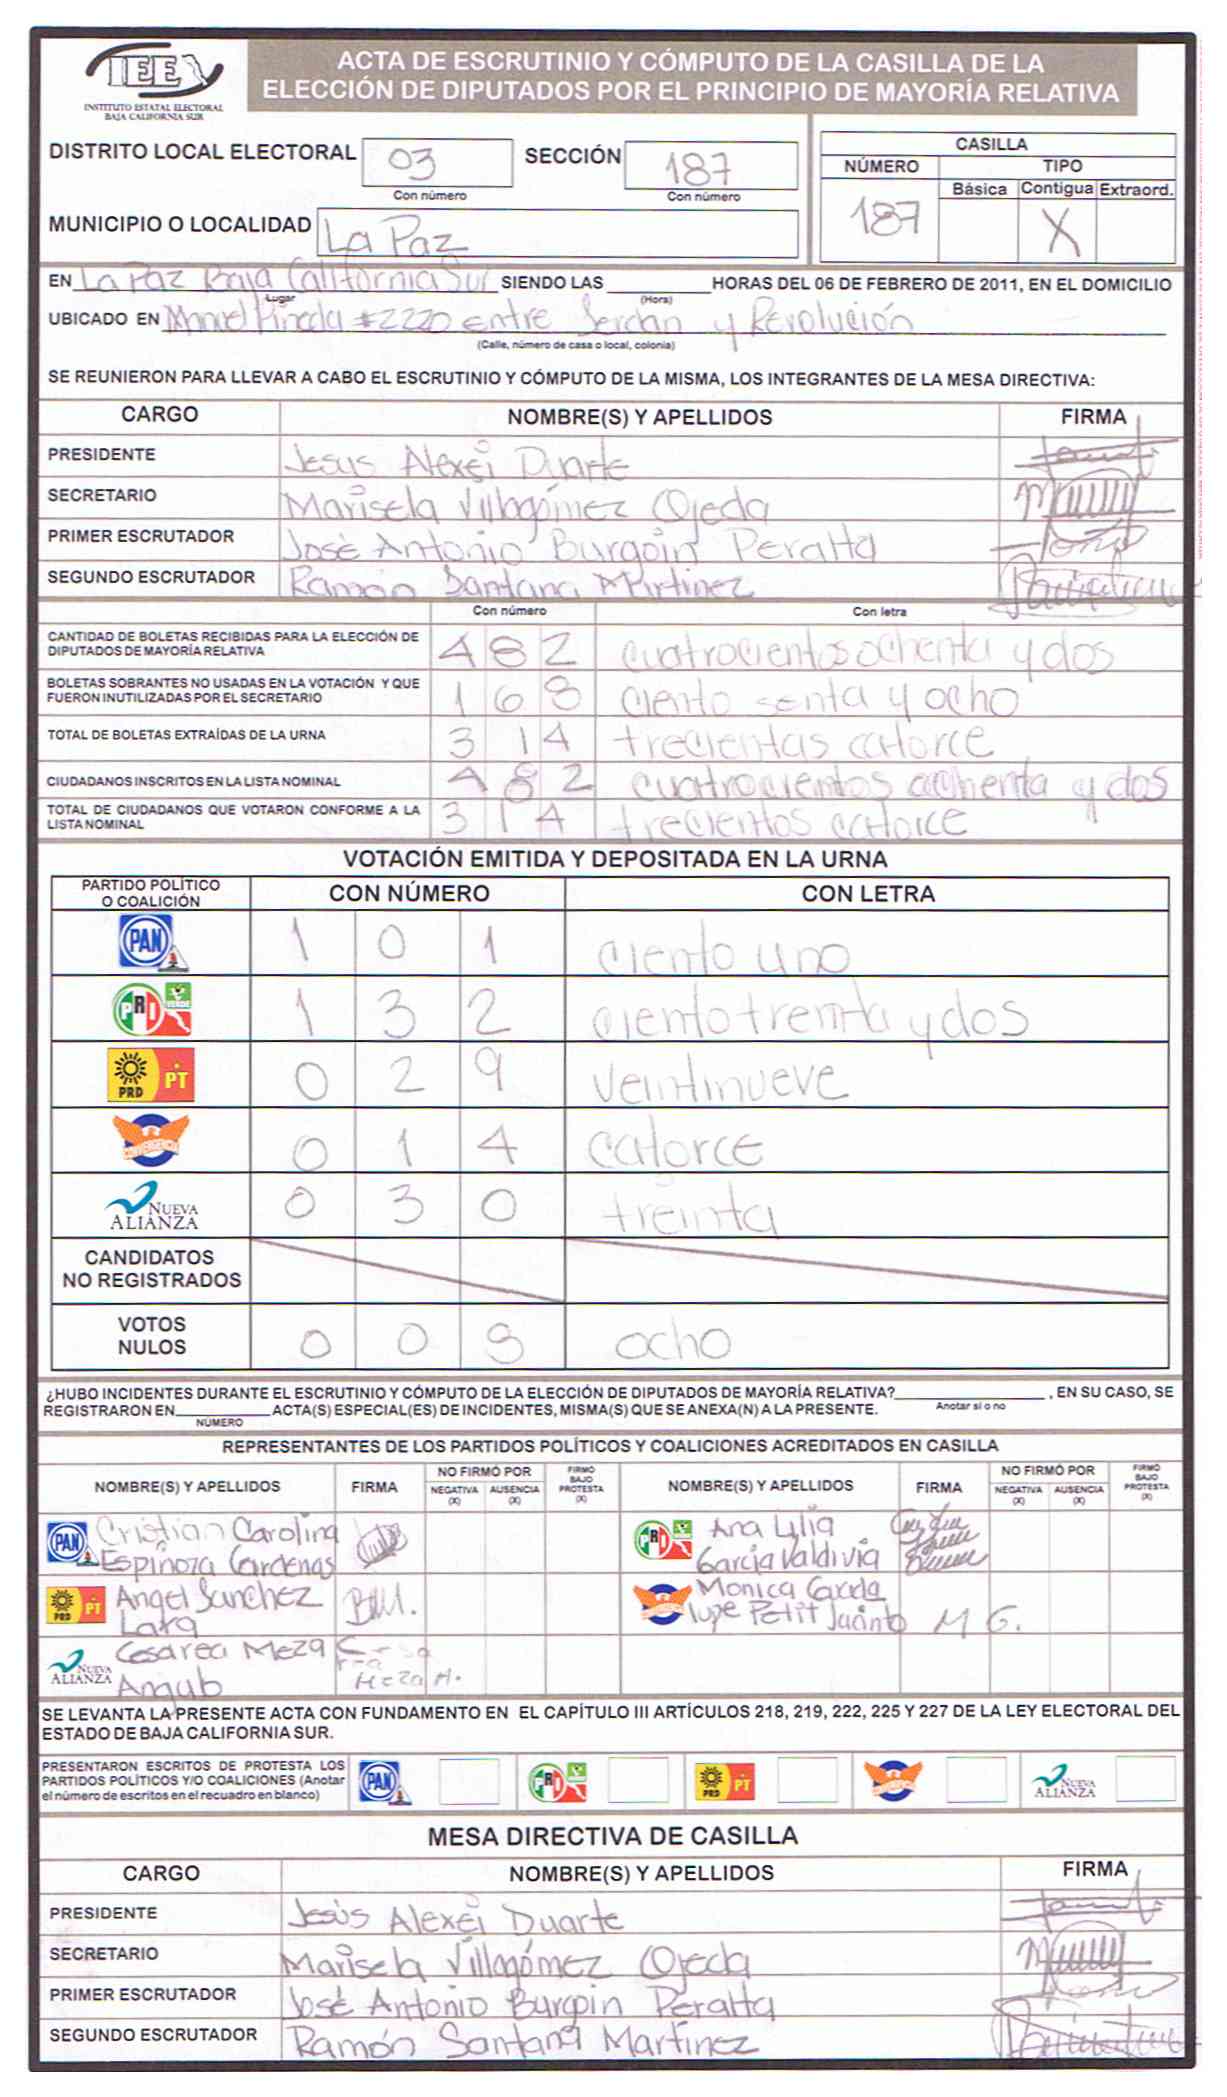 IEE
INSTITUTO ESTATAL ELECTORAL
BAJA CALIFORNIA SUR
ACTA DE ESCRUTINIO Y CÓMPUTO DE LA CASILLA DE LA
ELECCIÓN DE DIPUTADOS POR EL PRINCIPIO DE MAYORÍA RELATIVA
DISTRITO LOCAL ELECTORAL 03 SECCIÓN 187
Con número Con número
MUNICIPIO O LOCALIDAD La Paz
CASILLA
NÚMERO TIPO
Básica Contigua Extraord.
187 X
EN La Paz Baja California Sur SIENDO LAS HORAS DEL 06 DE FEBRERO DE 2011, EN EL DOMICILIO
Lugar (Hora)
UBICADO EN Manuel Pineda #2220 entre Serdan y Revolución
(Calle, número de casa o local, colonia)
SE REUNIERON PARA LLEVAR A CABO EL ESCRUTINIO Y CÓMPUTO DE LA MISMA, LOS INTEGRANTES DE LA MESA DIRECTIVA:
CARGO NOMBRE(S) Y APELLIDOS FIRMA
PRESIDENTE Jesus Alexei Duarte
SECRETARIO Marisela Villagómez Ojeda
PRIMER ESCRUTADOR José Antonio Burgoin Peralta
SEGUNDO ESCRUTADOR Ramón Santana Martinez
Con número Con letra
CANTIDAD DE BOLETAS RECIBIDAS PARA LA ELECCIÓN DE
DIPUTADOS DE MAYORÍA RELATIVA 4 8 2 cuatrocientos ochenta y dos
BOLETAS SOBRANTES NO USADAS EN LA VOTACIÓN Y QUE
FUERON INUTILIZADAS POR EL SECRETARIO 1 6 8 ciento senta y ocho
TOTAL DE BOLETAS EXTRAÍDAS DE LA URNA 3 1 4 trecientas catorce
CIUDADANOS INSCRITOS EN LA LISTA NOMINAL 4 8 2 cuatrocientos ochenta y dos
TOTAL DE CIUDADANOS QUE VOTARON CONFORME A LA
LISTA NOMINAL 3 1 4 trecientos catorce
VOTACIÓN EMITIDA Y DEPOSITADA EN LA URNA
PARTIDO POLÍTICO
O COALICIÓN CON NÚMERO CON LETRA
PAN 1 0 1 ciento uno
PRI VERDE 1 3 2 ciento treinta y dos
PRD PT 0 2 9 veintinueve
CONVERGENCIA 0 1 4 catorce
NUEVA
ALIANZA 0 3 0 treinta
CANDIDATOS
NO REGISTRADOS
VOTOS
NULOS 0 0 8 ocho
¿HUBO INCIDENTES DURANTE EL ESCRUTINIO Y CÓMPUTO DE LA ELECCIÓN DE DIPUTADOS DE MAYORÍA RELATIVA? , EN SU CASO, SE
Anotar si o no
REGISTRARON EN ACTA(S) ESPECIAL(ES) DE INCIDENTES, MISMA(S) QUE SE ANEXA(N) A LA PRESENTE.
NÚMERO
REPRESENTANTES DE LOS PARTIDOS POLÍTICOS Y COALICIONES ACREDITADOS EN CASILLA
NOMBRE(S) Y APELLIDOS FIRMA NO FIRMÓ POR NEGATIVA (X) AUSENCIA (X) FIRMÓ BAJO PROTESTA (X) NOMBRE(S) Y APELLIDOS FIRMA NO FIRMÓ POR NEGATIVA (X) AUSENCIA (X) FIRMÓ BAJO PROTESTA (X)
PAN Cristian Carolina
Espinoza Cardenas
PRI Ana Lilia
Garcia Valdivia
PRD PT Angel Sanchez
Lara
Monica Guada
lupe Petit Jacinto M G.
NUEVA
ALIANZA Cesarea Meza
Meza A.
SE LEVANTA LA PRESENTE ACTA CON FUNDAMENTO EN EL CAPÍTULO III ARTÍCULOS 218, 219, 222, 225 Y 227 DE LA LEY ELECTORAL DEL
ESTADO DE BAJA CALIFORNIA SUR.
PRESENTARON ESCRITOS DE PROTESTA LOS
PARTIDOS POLÍTICOS Y/O COALICIONES (Anotar
el número de escritos en el recuadro en blanco)
PAN PRI PRD PT CONVERGENCIA NUEVA ALIANZA
MESA DIRECTIVA DE CASILLA
CARGO NOMBRE(S) Y APELLIDOS FIRMA
PRESIDENTE Jesús Alexei Duarte
SECRETARIO Marisela Villagómez Ojeda
PRIMER ESCRUTADOR José Antonio Burgoin Peralta
SEGUNDO ESCRUTADOR Ramón Santana Martinez